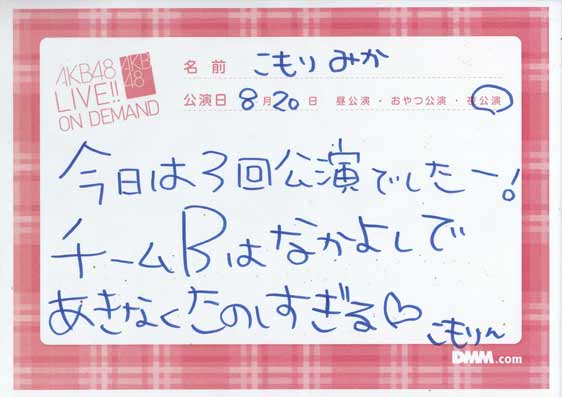 AKB48
LIVE!!
ON DEMAND
AKB
48
名前 こもりみか
公演日 8月20日 昼公演・おやつ公演・夜公演
今日は3回公演でしたー!
チームBはなかよしで
あきなくたのしすぎる♡
こもりん
DMM.com